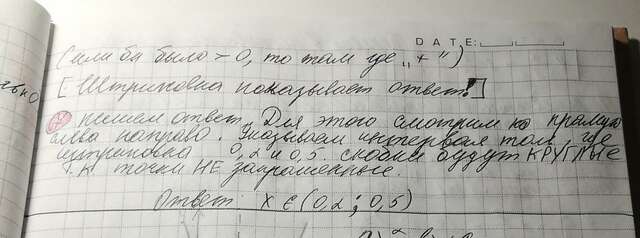 DATE:
(или бы было > 0, то там где „+")
[Штриховка показывает ответ!]
пишем ответ. Для этого смотрим на прямую
слева направо. Указываем интервал там, где
штриховка 0,2 и 0,5. скобки будут КРУГЛЫЕ
т.к точки НЕ закрашенные.
Ответ: x ∈ (0,2; 0,5)